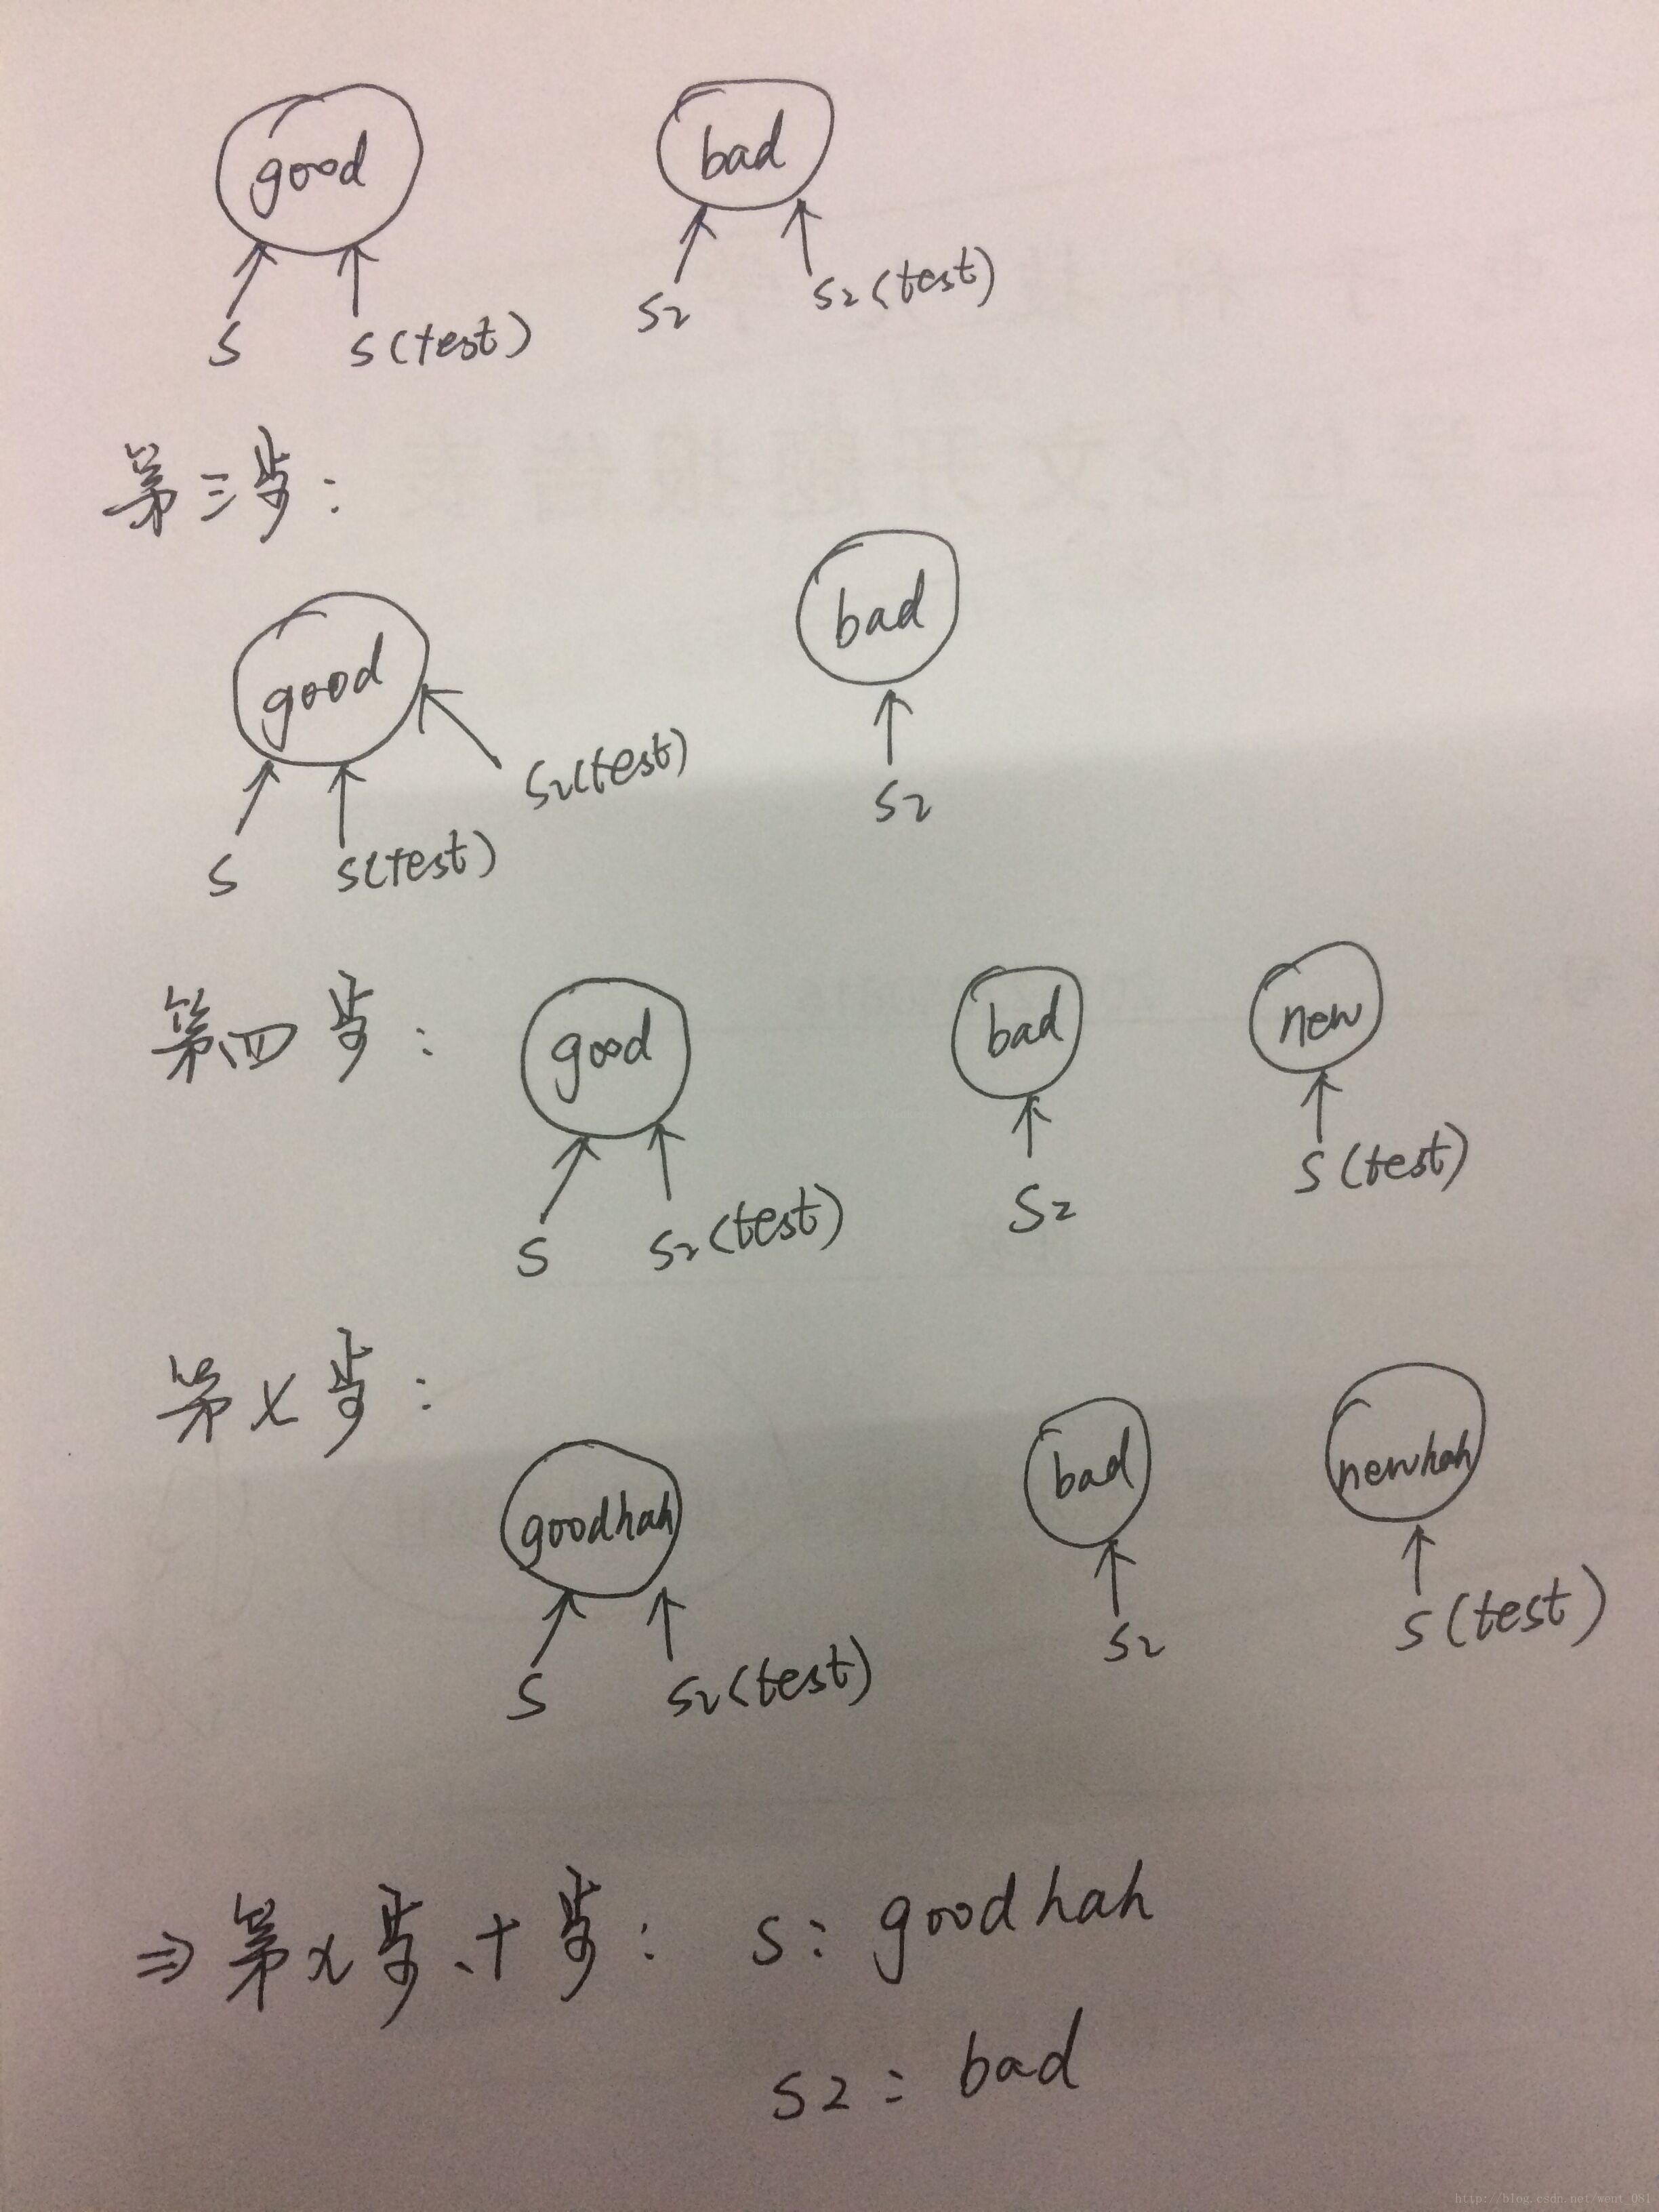 good bad
s s(test) s2 s2(test)
第三步:
good bad
s2(test) s2
s s(test)
第四步: good bad new
s s2(test) s2 s(test)
第x步:
goodhah bad newhah
s s2(test) s2 s(test)
⇒ 第x步、十步: s: goodhah
s2: bad